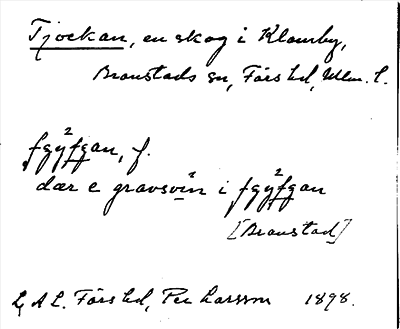 Tjockan, en skog i Klamby,
Braustads sn, Färs hd, Mlm. l.
fgy²fgan, f.
dær e gravsvin i fgy²fgan
[Braustad]
LAL. Färs hd, Per Larsson 1898.